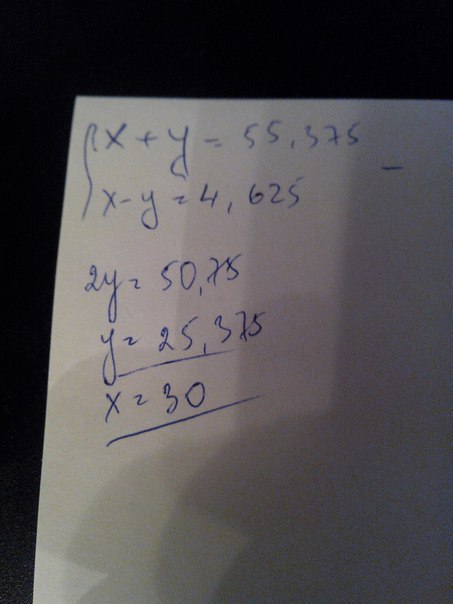 { x + y = 55,375
x - y = 4,625 -
2y = 50,75
y = 25,375
x = 30